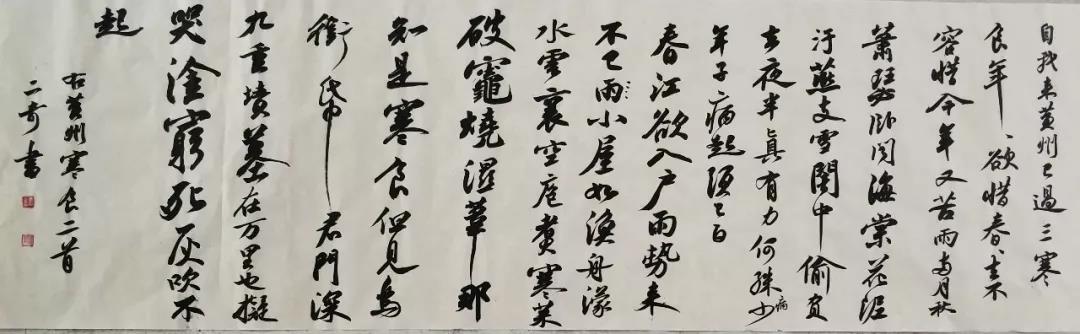 自我来黄州已過三寒
食年、欲惜春、去不
容惜今年又苦雨两月秋
蕭瑟卧闻海棠花泥
汙燕支雪闇中偷負
去夜半真有力何殊少病
年子病起頭已白
春江欲入户雨勢来
不已雨小屋如漁舟濛
水雲裏空庖煑寒菜
破竈燒濕葦那
知是寒食但見烏
銜帋君門深
九重墳墓在万里也擬
哭塗窮死灰吹不
起
右黄州寒食二首
二奇書